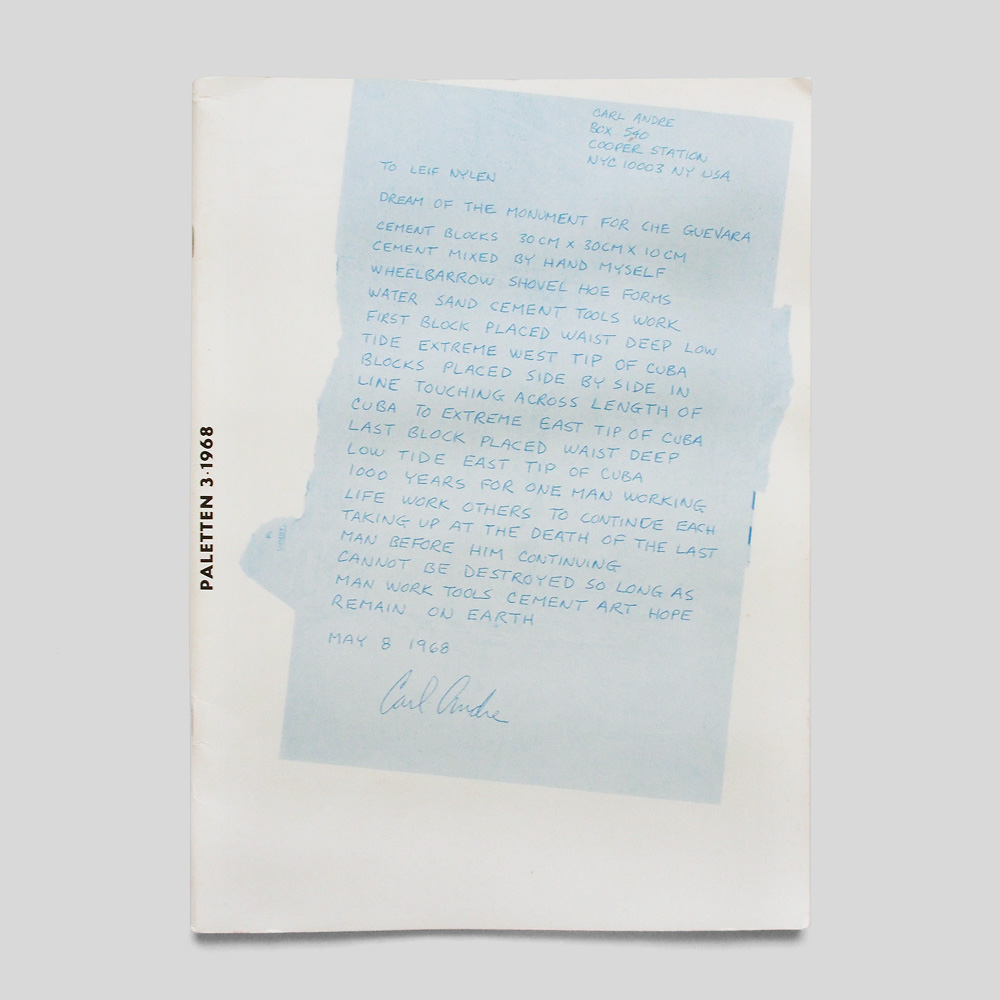 PALETTEN 3·1968
CARL ANDRE
BOX 540
COOPER STATION
NYC 10003 NY USA
TO LEIF NYLEN
DREAM OF THE MONUMENT FOR CHE GUEVARA
CEMENT BLOCKS 30 CM X 30CM X 10 CM
CEMENT MIXED BY HAND MYSELF
WHEELBARROW SHOVEL HOE FORMS
WATER SAND CEMENT TOOLS WORK
FIRST BLOCK PLACED WAIST DEEP LOW
TIDE EXTREME WEST TIP OF CUBA
BLOCKS PLACED SIDE BY SIDE IN
LINE TOUCHING ACROSS LENGTH OF
CUBA TO EXTREME EAST TIP OF CUBA
LAST BLOCK PLACED WAIST DEEP
LOW TIDE EAST TIP OF CUBA
1000 YEARS FOR ONE MAN WORKING
LIFE WORK OTHERS TO CONTINUE EACH
TAKING UP AT THE DEATH OF THE LAST
MAN BEFORE HIM CONTINUING
CANNOT BE DESTROYED SO LONG AS
MAN WORK TOOLS CEMENT ART HOPE
REMAIN ON EARTH
MAY 8 1968
Carl Andre